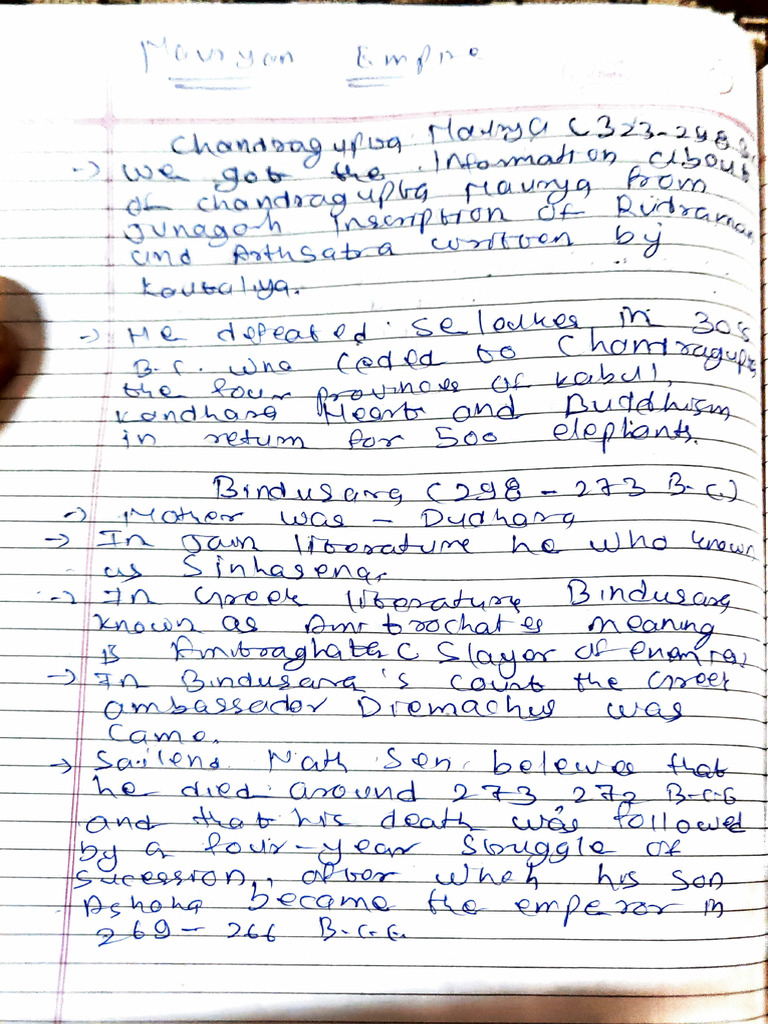 Mauryan Empire
Chandragupta Maurya (323-298
-> We got the information about
of chandragupta Maurya from
Junagarh Inscription of Rudraman
and Arthsatra written by
Koutaliya.
-> He defeated Seloukes in 305
B.C. who ceded to Chandragupta
the four provinces of kabul,
kandhara Heart and Buddhism
in return for 500 elephants.
Bindusara (298 - 273 B.C.)
-> Mother was - Dudhara
-> In Jain literature he who known
as Sinhasena.
-> In Greek literature Bindusara
known as Amitrochates meaning
is Amitraghata ( Slayer of enemies)
-> In Bindusara's court the Greek
ambassador Diemachus was
came.
-> Sailend Nath Sen beleves that
he died around 273 272 B.C.E
and that his death was followed
by a four-year Struggle of
sucession, after which his son
Ashoka became the emperor in
269 - 266 B.C.E.